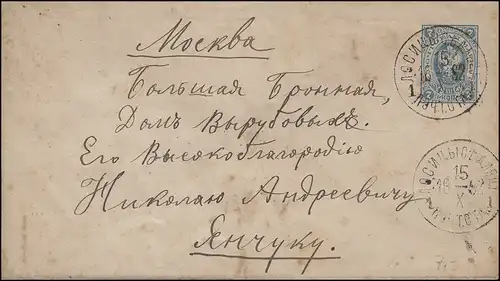 Москва
Большая Бронная,
Домъ Вырубовыхъ.
Его Высокоблагородію
Николаю Андреевичу
Янчуку.
15
X
1